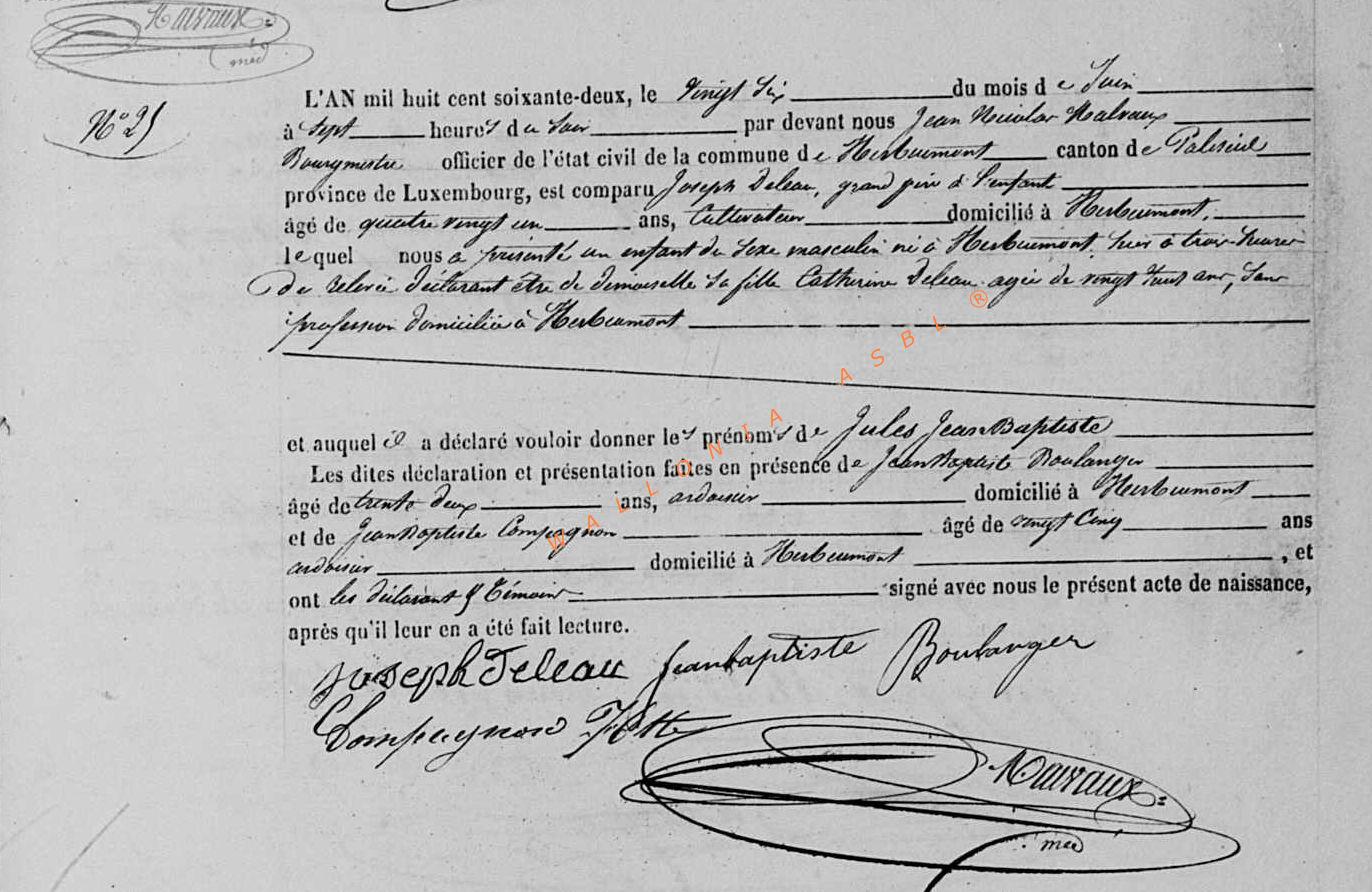 Malvaux
med
N° 25
L'AN mil huit cent soixante-deux, le vingt Six du mois de Juin
à Sept heures du Soir par devant nous Jean Nicolas Malvaux
Bourgmestre officier de l'état civil de la commune de Herbeumont canton de Paliseul
province de Luxembourg, est comparu Joseph Deleau, grand père à l'enfant
âgé de quatre vingt un ans, Cultivateur domicilié à Herbeumont,
lequel nous a présenté un enfant du Sexe masculin né à Herbeumont, hier à trois heures
de relevée déclarant être de demoiselle Sa fille Catherine Deleau agée de vingt ans, Sans
profession domiciliée à Herbeumont
et auquel il a déclaré vouloir donner les prénoms de Jules Jean Baptiste
Les dites déclaration et présentation faites en présence de Jean Baptiste Boulanger
âgé de trente deux ans, ardoisier domicilié à Herbeumont
et de Jean Baptiste Compagnon âgé de vingt Cinq ans
ardoisier domicilié à Herbeumont, et
ont les déclarant & Témoins signé avec nous le présent acte de naissance,
après qu'il leur en a été fait lecture.
Joseph Deleau Jeanbaptiste Boulanger
Compagnon
Malvaux
med
WALLONIA ASBL ®